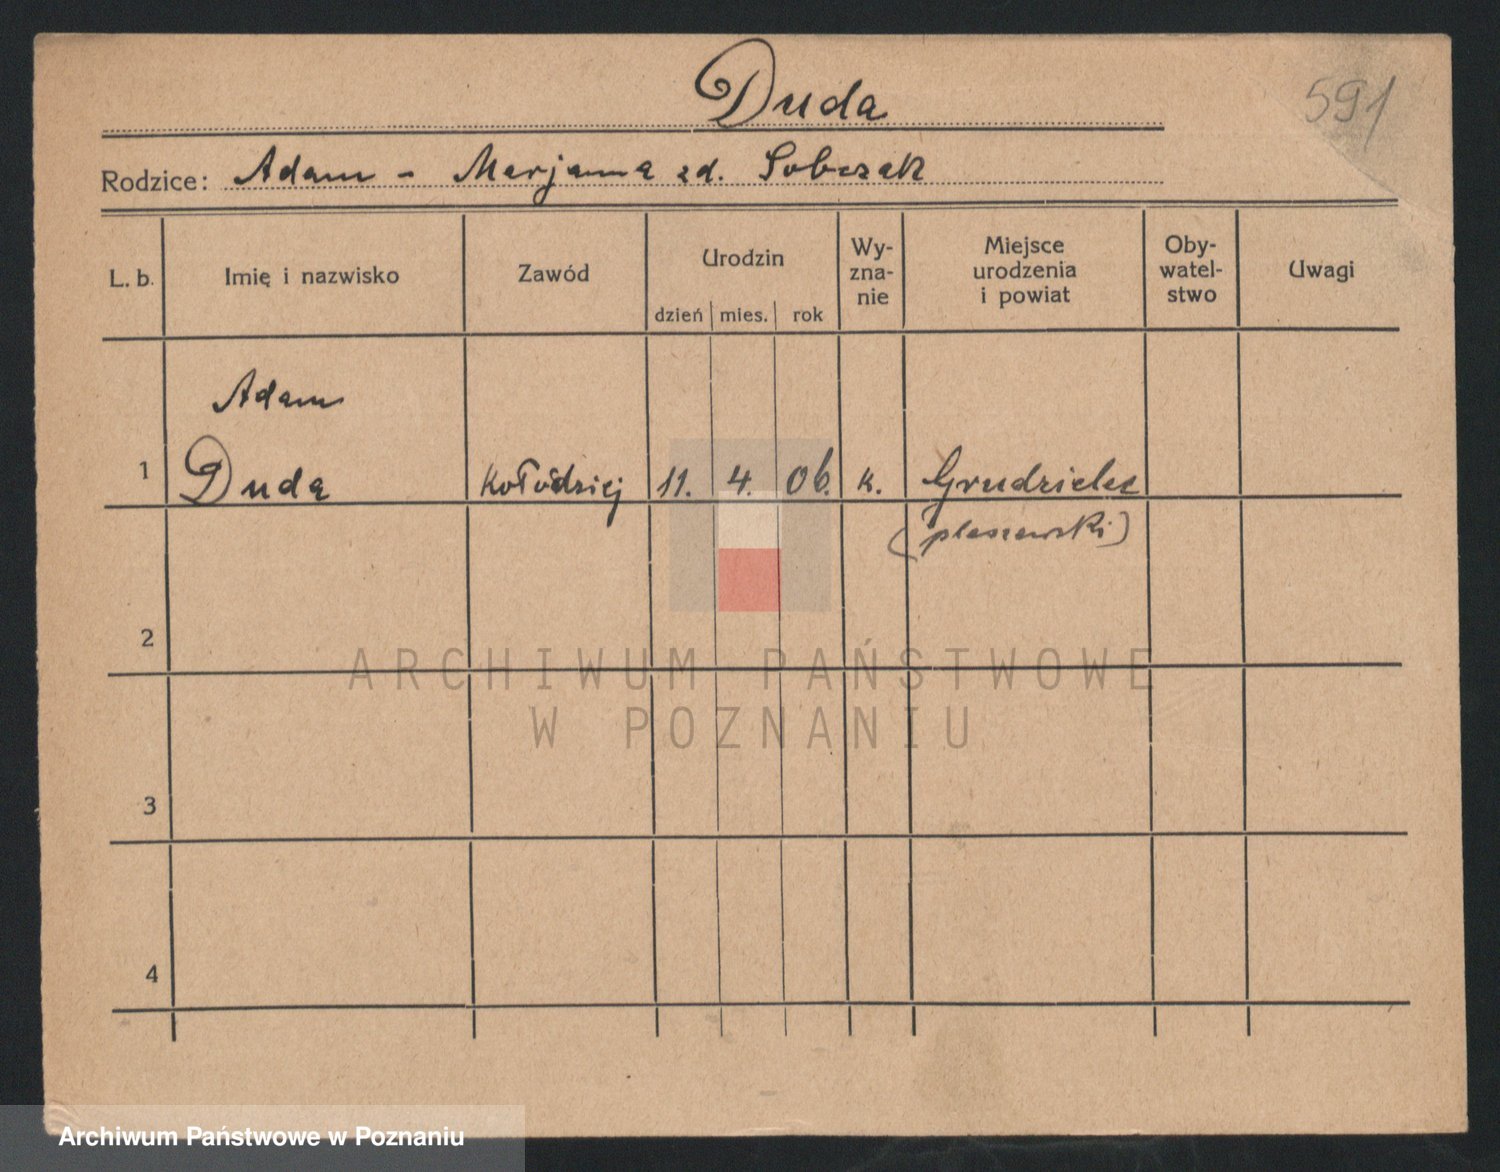 Duda
591
Rodzice: Adam - Marjanna zd. Sobczak
L. b. Imię i nazwisko Zawód Urodzin dzień mies. rok Wy-zna-nie Miejsce urodzenia i powiat Oby-watel-stwo Uwagi
Adam
1 Duda kołodziej 11. 4. 06. k. Grudzielec
(pleszewski)
2
ARCHIWUM PAŃSTWOWE
W POZNANIU
3
4
Archiwum Państwowe w Poznaniu